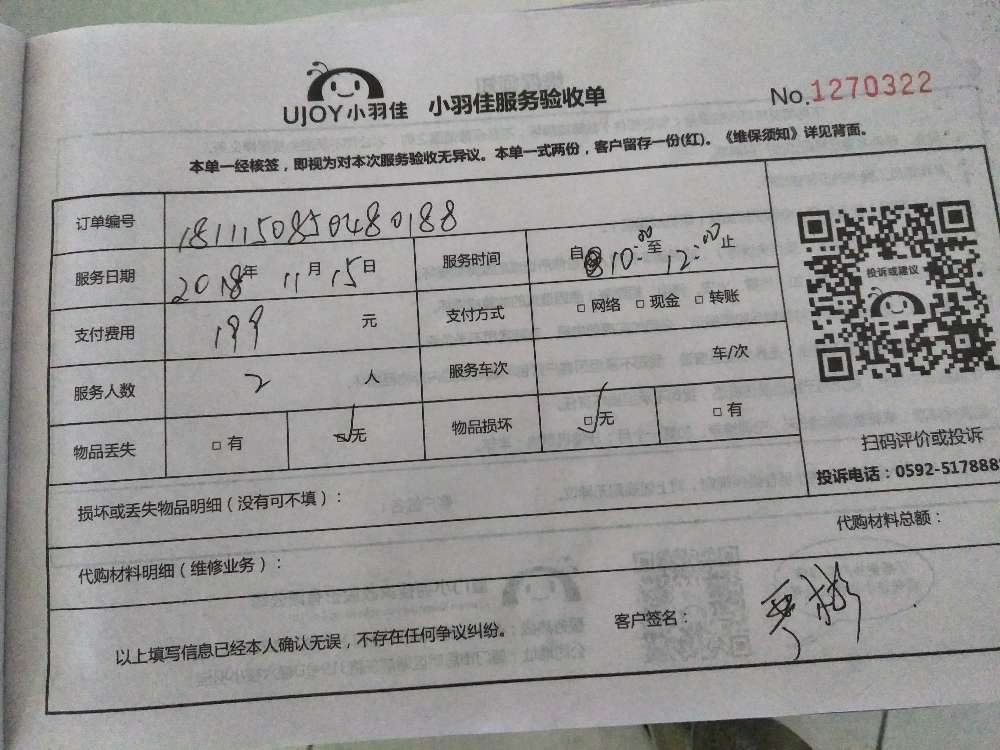 UJOY小羽佳 小羽佳服务验收单 No.1270322
本单一经核签，即视为对本次服务验收无异议。本单一式两份，客户留存一份(红)。《维保须知》详见背面。
订单编号 1811150850480188
服务日期 2018年 11月 15日 服务时间 自 10:00至 12:00止
支付费用 199 元 支付方式 □ 网络 □ 现金 □ 转账
服务人数 2 人 服务车次 车/次
物品丢失 □ 有 ☑无 物品损坏 ☑无 □ 有
投诉或建议
扫码评价或投诉
投诉电话：0592-517888
损坏或丢失物品明细（没有可不填）：
代购材料明细（维修业务）： 代购材料总额：
以上填写信息已经本人确认无误，不存在任何争议纠纷。 客户签名：